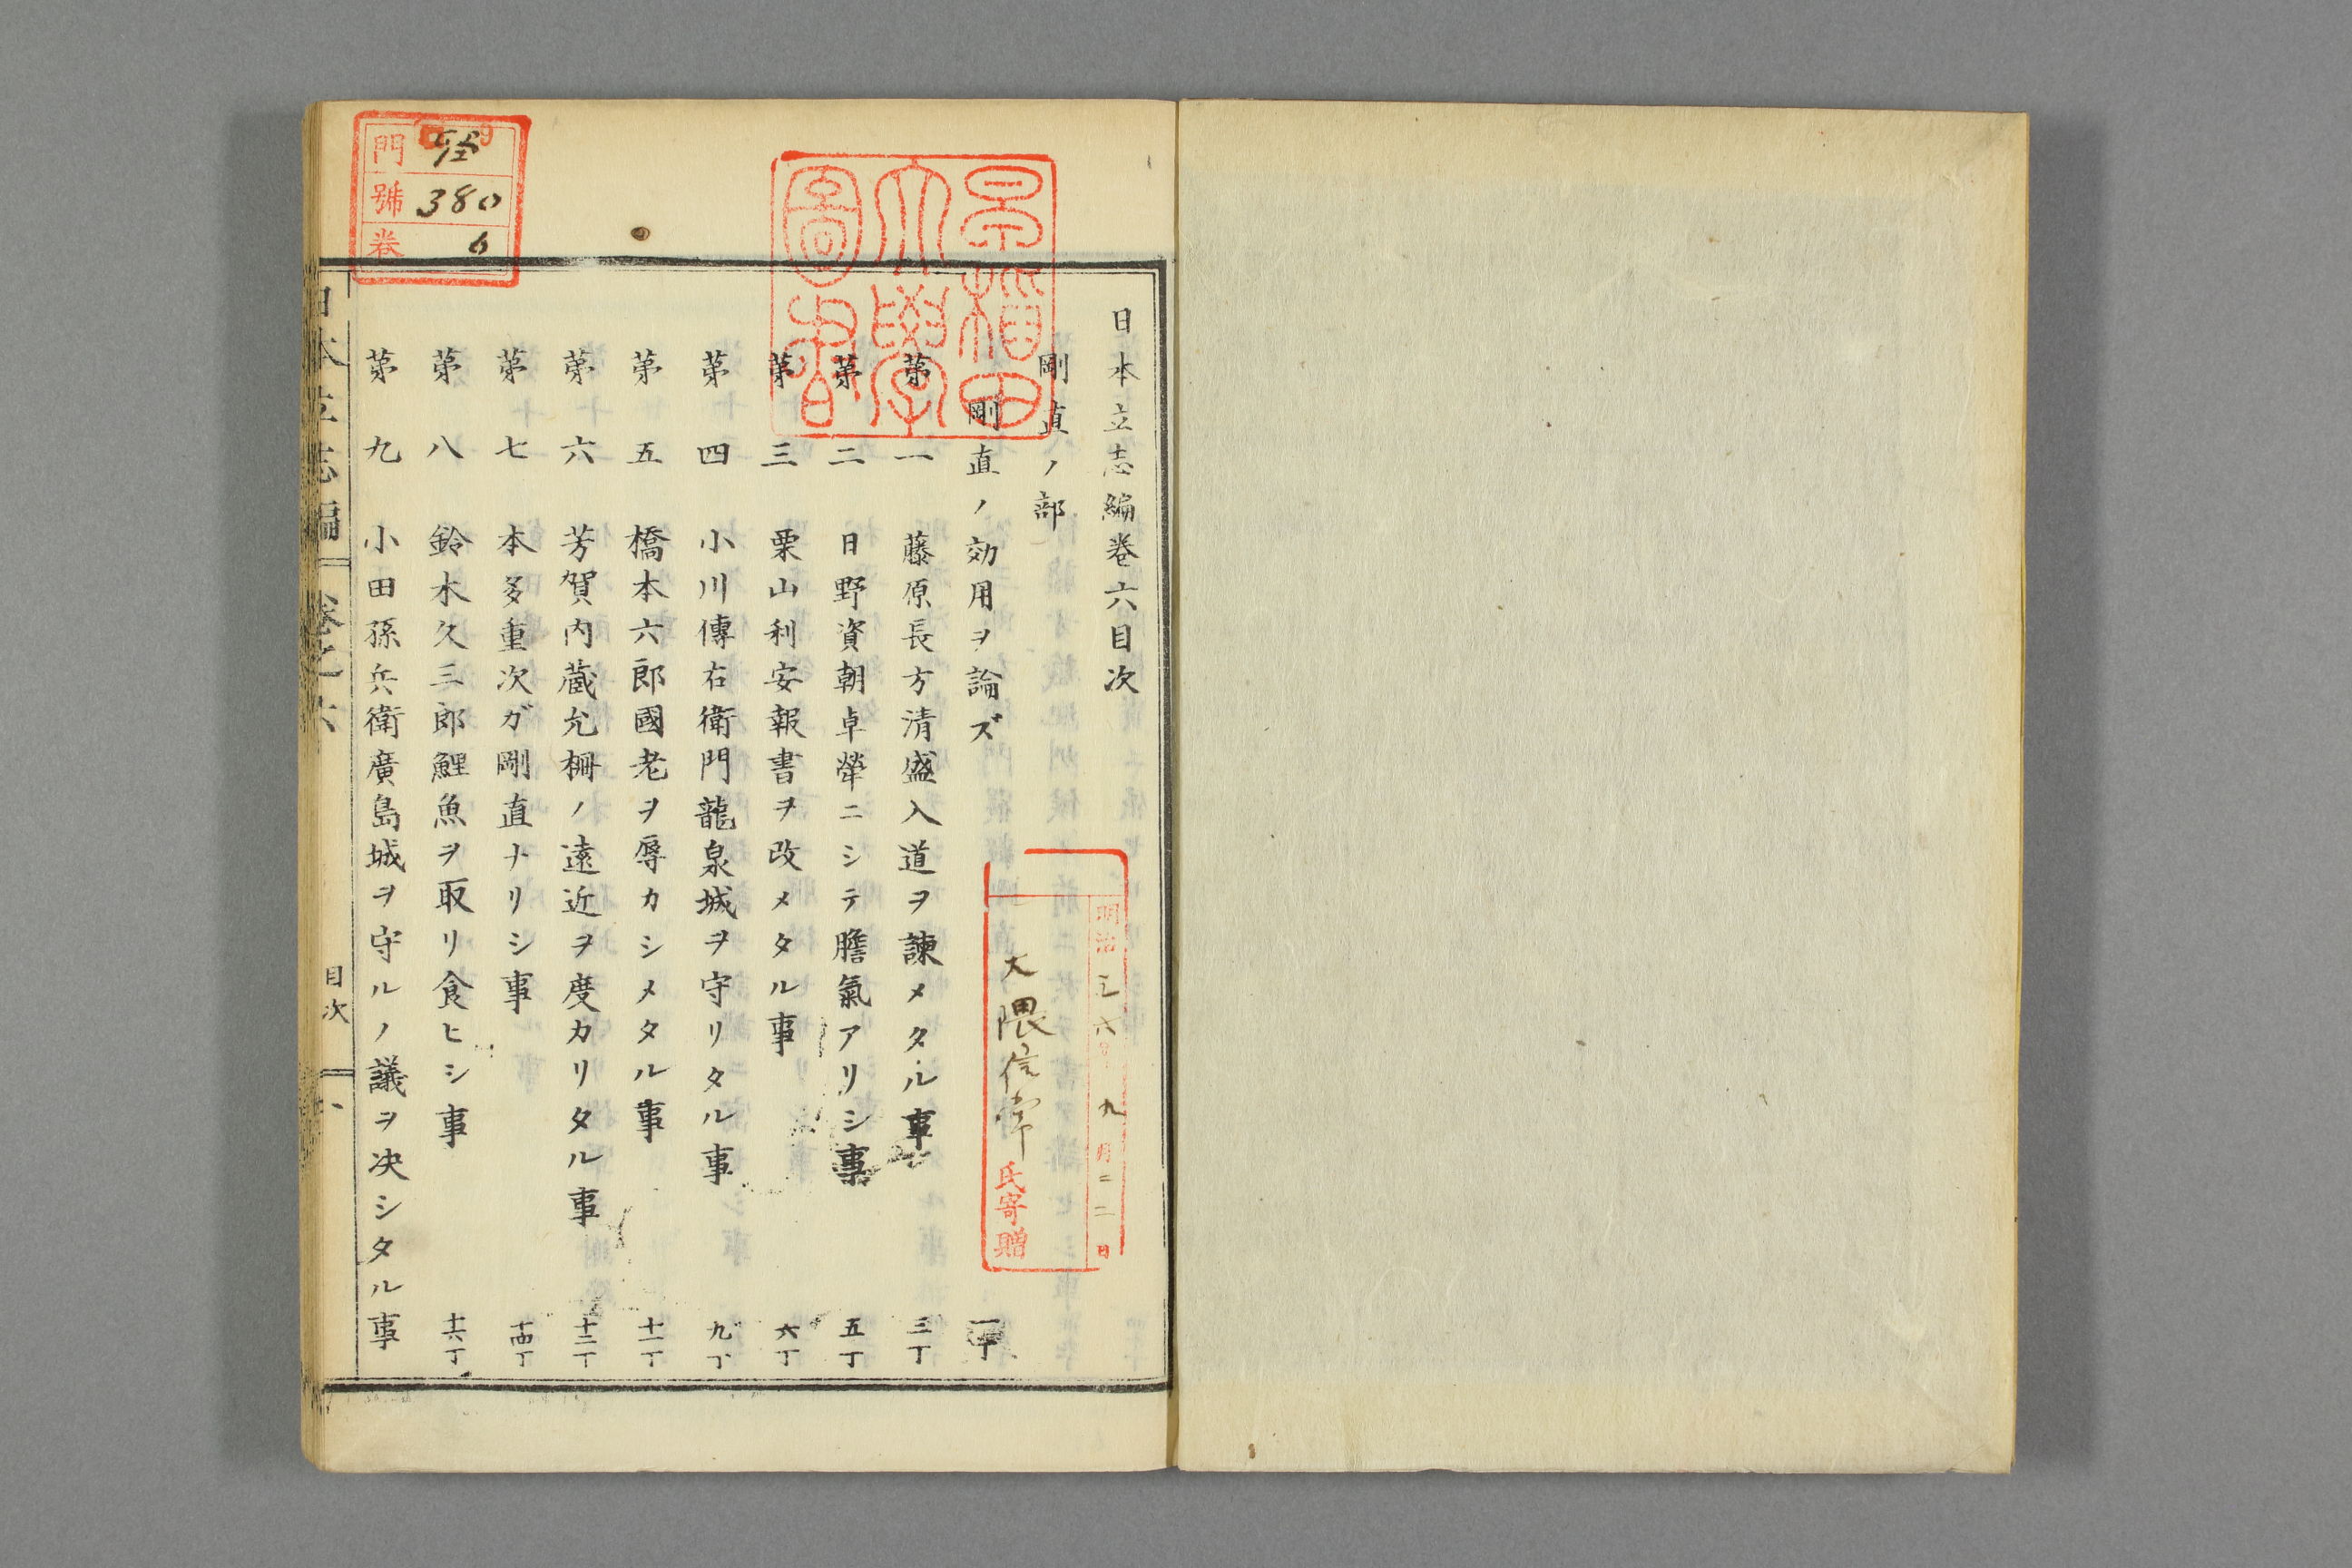 日本立志編卷六目次
剛直ノ部
剛直ノ効用ヲ論ズ 一丁
第一 藤原長方清盛入道ヲ諫メタル事 三丁
第二 日野資朝卓犖ニシテ膽氣アリシ事 五丁
第三 栗山利安報書ヲ改メタル事 六丁
第四 小川傳右衛門龍泉城ヲ守リタル事 九丁
第五 橋本六郎國老ヲ辱カシメタル事 十一丁
第六 芳賀内蔵允柵ノ遠近ヲ度カリタル事 十二丁
第七 本多重次ガ剛直ナリシ事 十四丁
第八 鈴木久三郎鯉魚ヲ取リ食ヒシ事 十六丁
第九 小田孫兵衛廣島城ヲ守ルノ議ヲ决シタル事
日本立志編 卷之六 目次 一
早稲田
大學
圖書
明治三六年九月二二日
大隈信常氏寄贈
門
號 380
卷 6